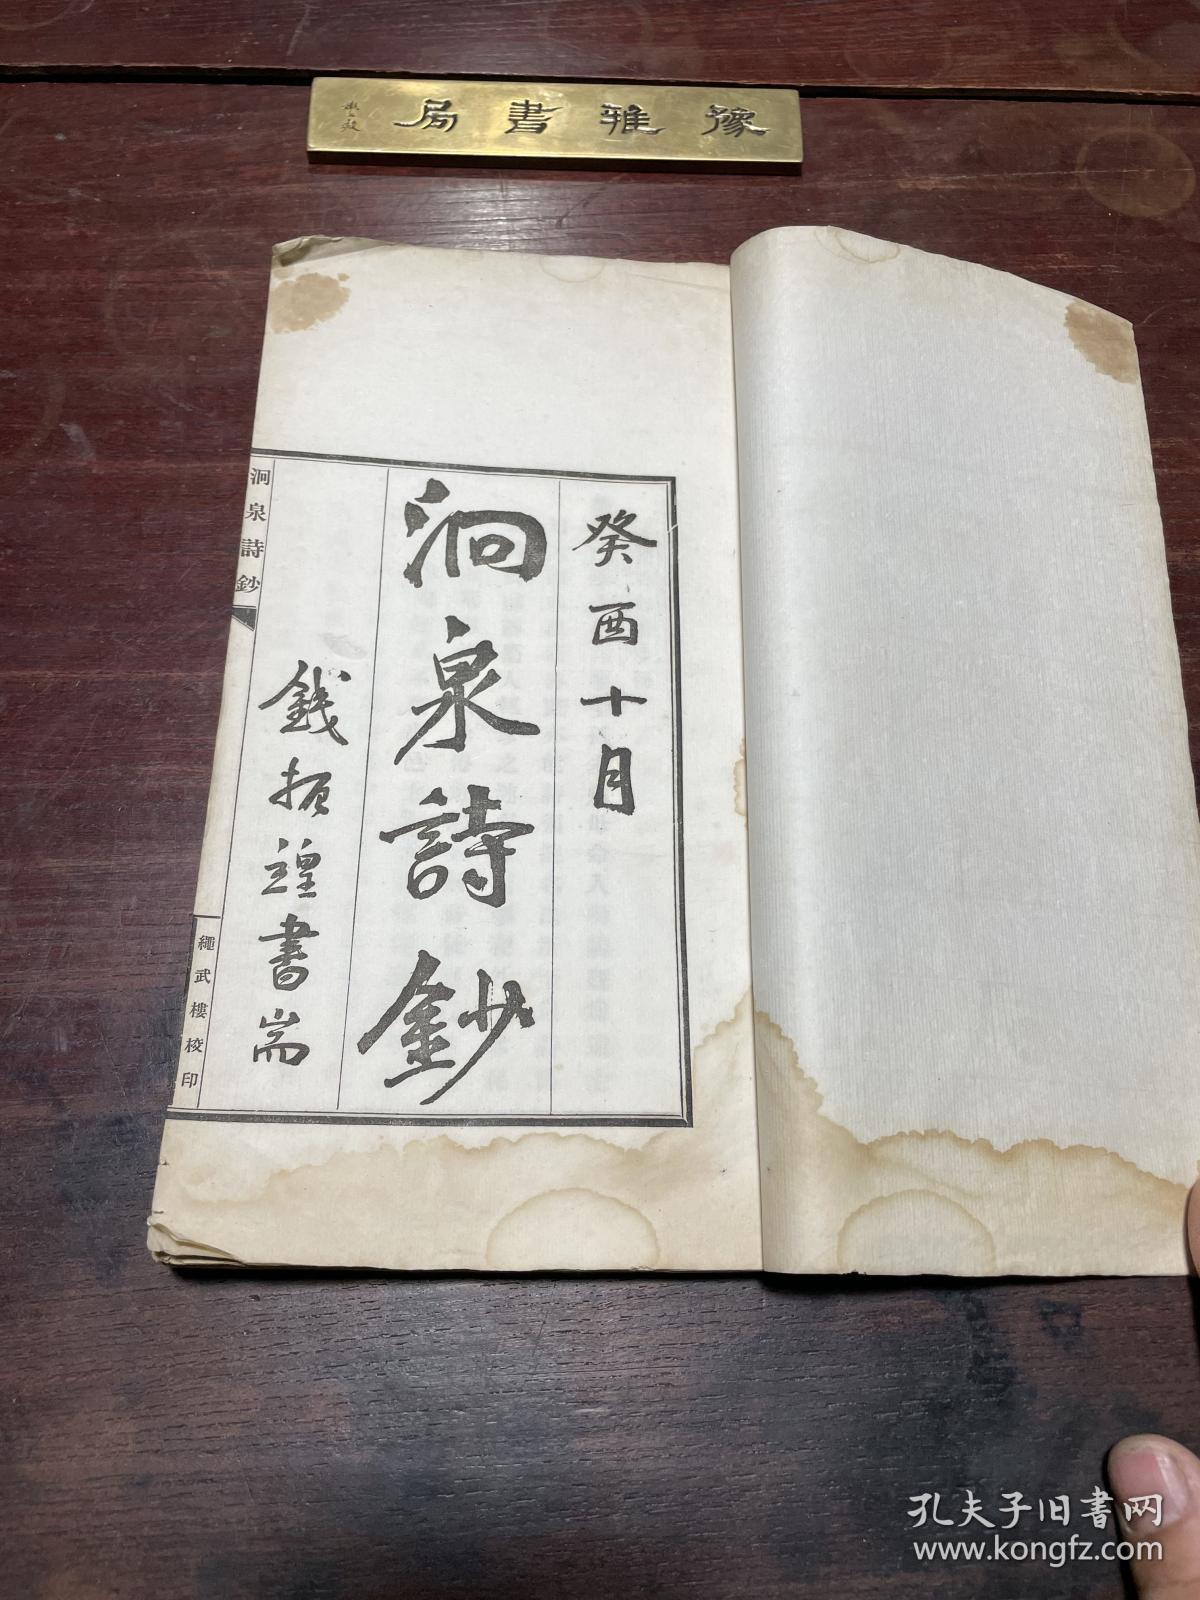 豫雅書局
癸酉十月
泂泉詩鈔
錢振鍠書耑
泂泉詩鈔
繩武樓校印
孔夫子旧书网
www.kongfz.com